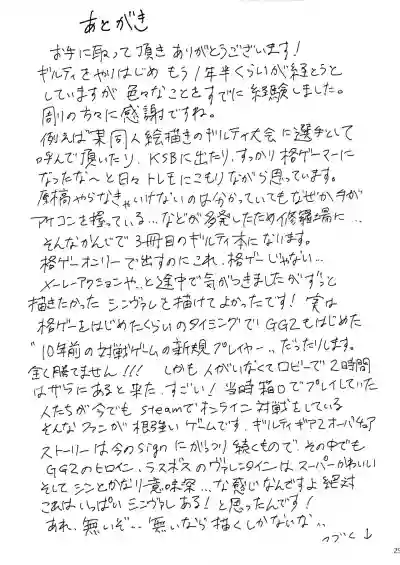 あとがき
お手に取って頂きありがとうございます!
ギルティをやりはじめ もう1年半くらいが経とうと
していますが 色々なことをすでに経験しました。
周りの方々に感謝ですね。
例えば某同人絵描きのギルティ大会に選手として
呼んで頂いたり、KSBに出たり、すっかり格ゲーマーに
なったな〜と日々トレモにこもりながら思っています。
原稿やらなきゃいけないのは分かっていてもなぜか手が
アケコンを握っている…などが多発したため修羅場に…
そんなかんじで3冊目のギルティ本になります。
格ゲーオンリーで出すのにこれ、格ゲーじゃない…
メーレーアクションや、と途中で気がつきましたがずっと
描きたかった シンヴァレを描けてよかったです! 実は
格ゲーをはじめたくらいのタイミングでGG2もはじめた
"10年前の対戦ゲームの新規プレイヤー"だったりします。
全く勝てません!!! しかも人がいなくてロビーで2時間
はザラにあると来た、すごい! 当時箱○でプレイしていた
人たちが今でもsteamでオンライン対戦をしている
そんなファンが根強いゲームです。ギルティギア2オーバチュア
ストーリーは今のsignにがっつり続くもので、その中でも
GG2のヒロイン、ラスボスのヴァレンタインは、スーパーかわいい
そしてシンとかなり意味深…な感じなんですよ絶対
これはいっぱいシンヴァレある!と思ったんです!
あれ、無いぞ… 無いなら描くしかないな…
つづく↓
25